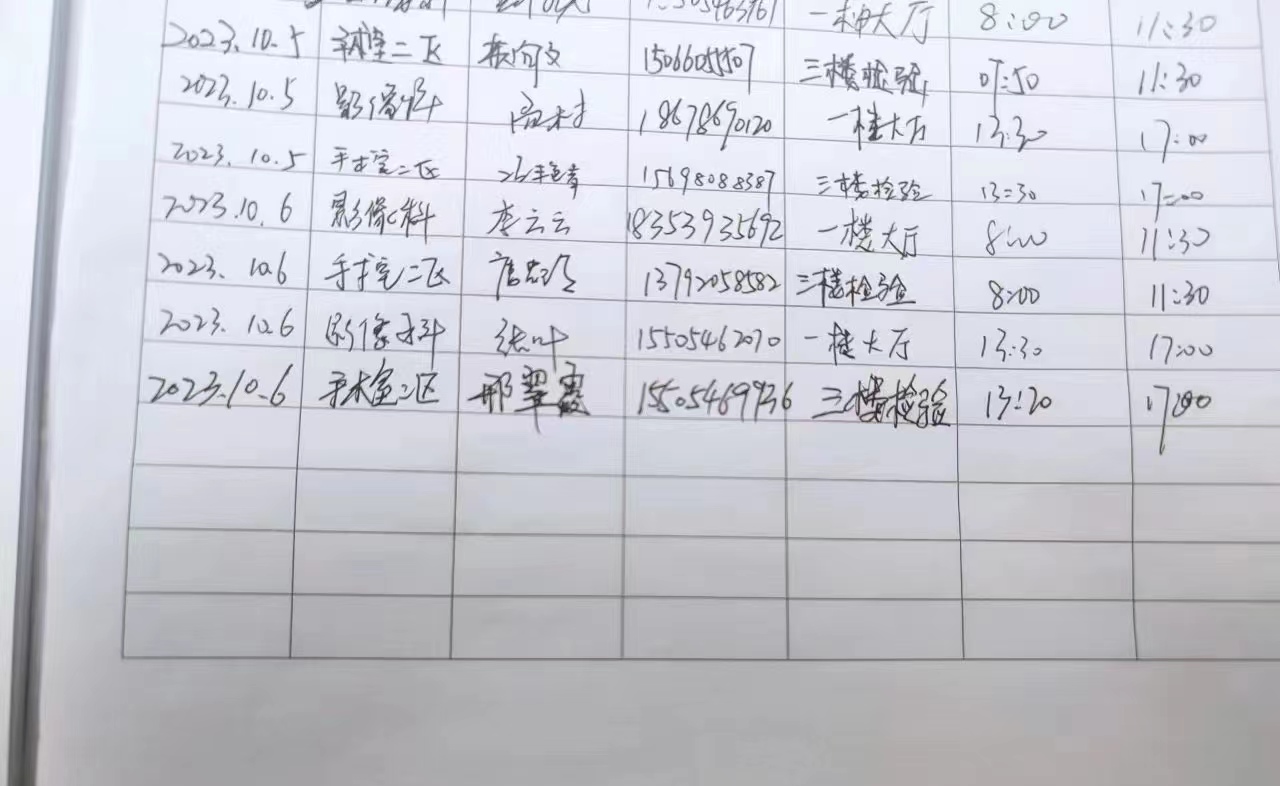 一楼大厅 8:00 11:30
2023.10.5 二区 15066055507 三楼检验 07:50 11:30
2023.10.5 影像科 18678690120 一楼大厅 13:30 17:00
2023.10.5 手术室二区 15698088387 三楼检验 13:30 17:00
2023.10.6 影像科 李云云 18353935692 一楼大厅 8:00 11:30
2023.10.6 手术室二区 13792058582 三楼检验 8:00 11:30
2023.10.6 影像科 张叶 15505462070 一楼大厅 13:30 17:00
2023.10.6 手术室二区 邢翠霞 15505469736 三楼检验 13:20 17:00